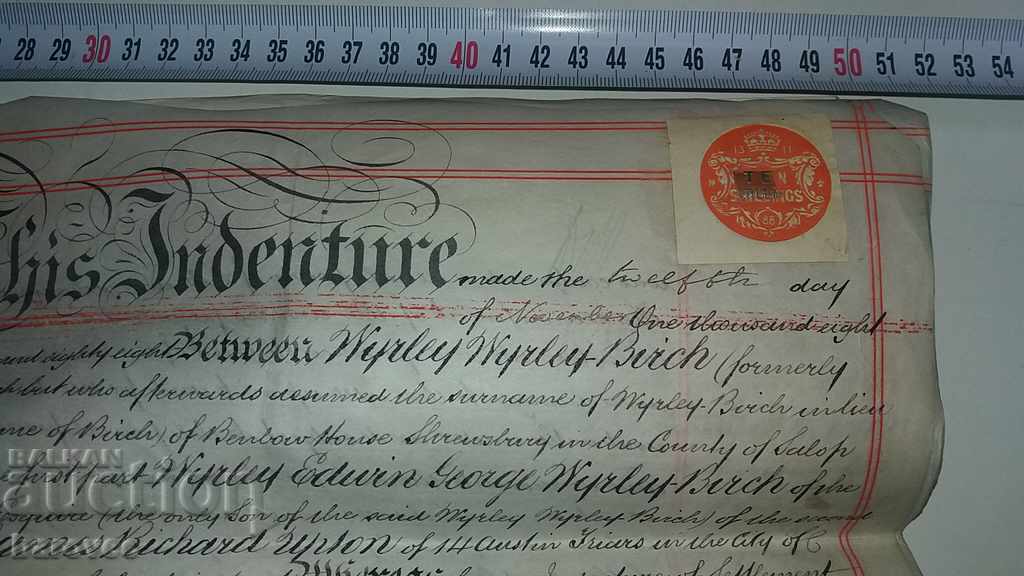 28 29 30 31 32 33 34 35 36 37 38 39 40 41 42 43 44 45 46 47 48 49 50 51 52 53 54
TEN
SHILLINGS
This Indenture made the twelfth day
of November One thousand eight
and eighty eight Between Wyrley Wyrley-Birch (formerly
but who afterwards assumed the surname of Wyrley-Birch in lieu
of Birch) of Benbow House Shrewsbury in the County of Salop
first part Wyrley Edwin George Wyrley-Birch of the
(the only son of the said Wyrley Wyrley Birch) of the second
Richard Upton of 14 Austin Friars in the City of
Indenture of Settlement
BALKAN
auction